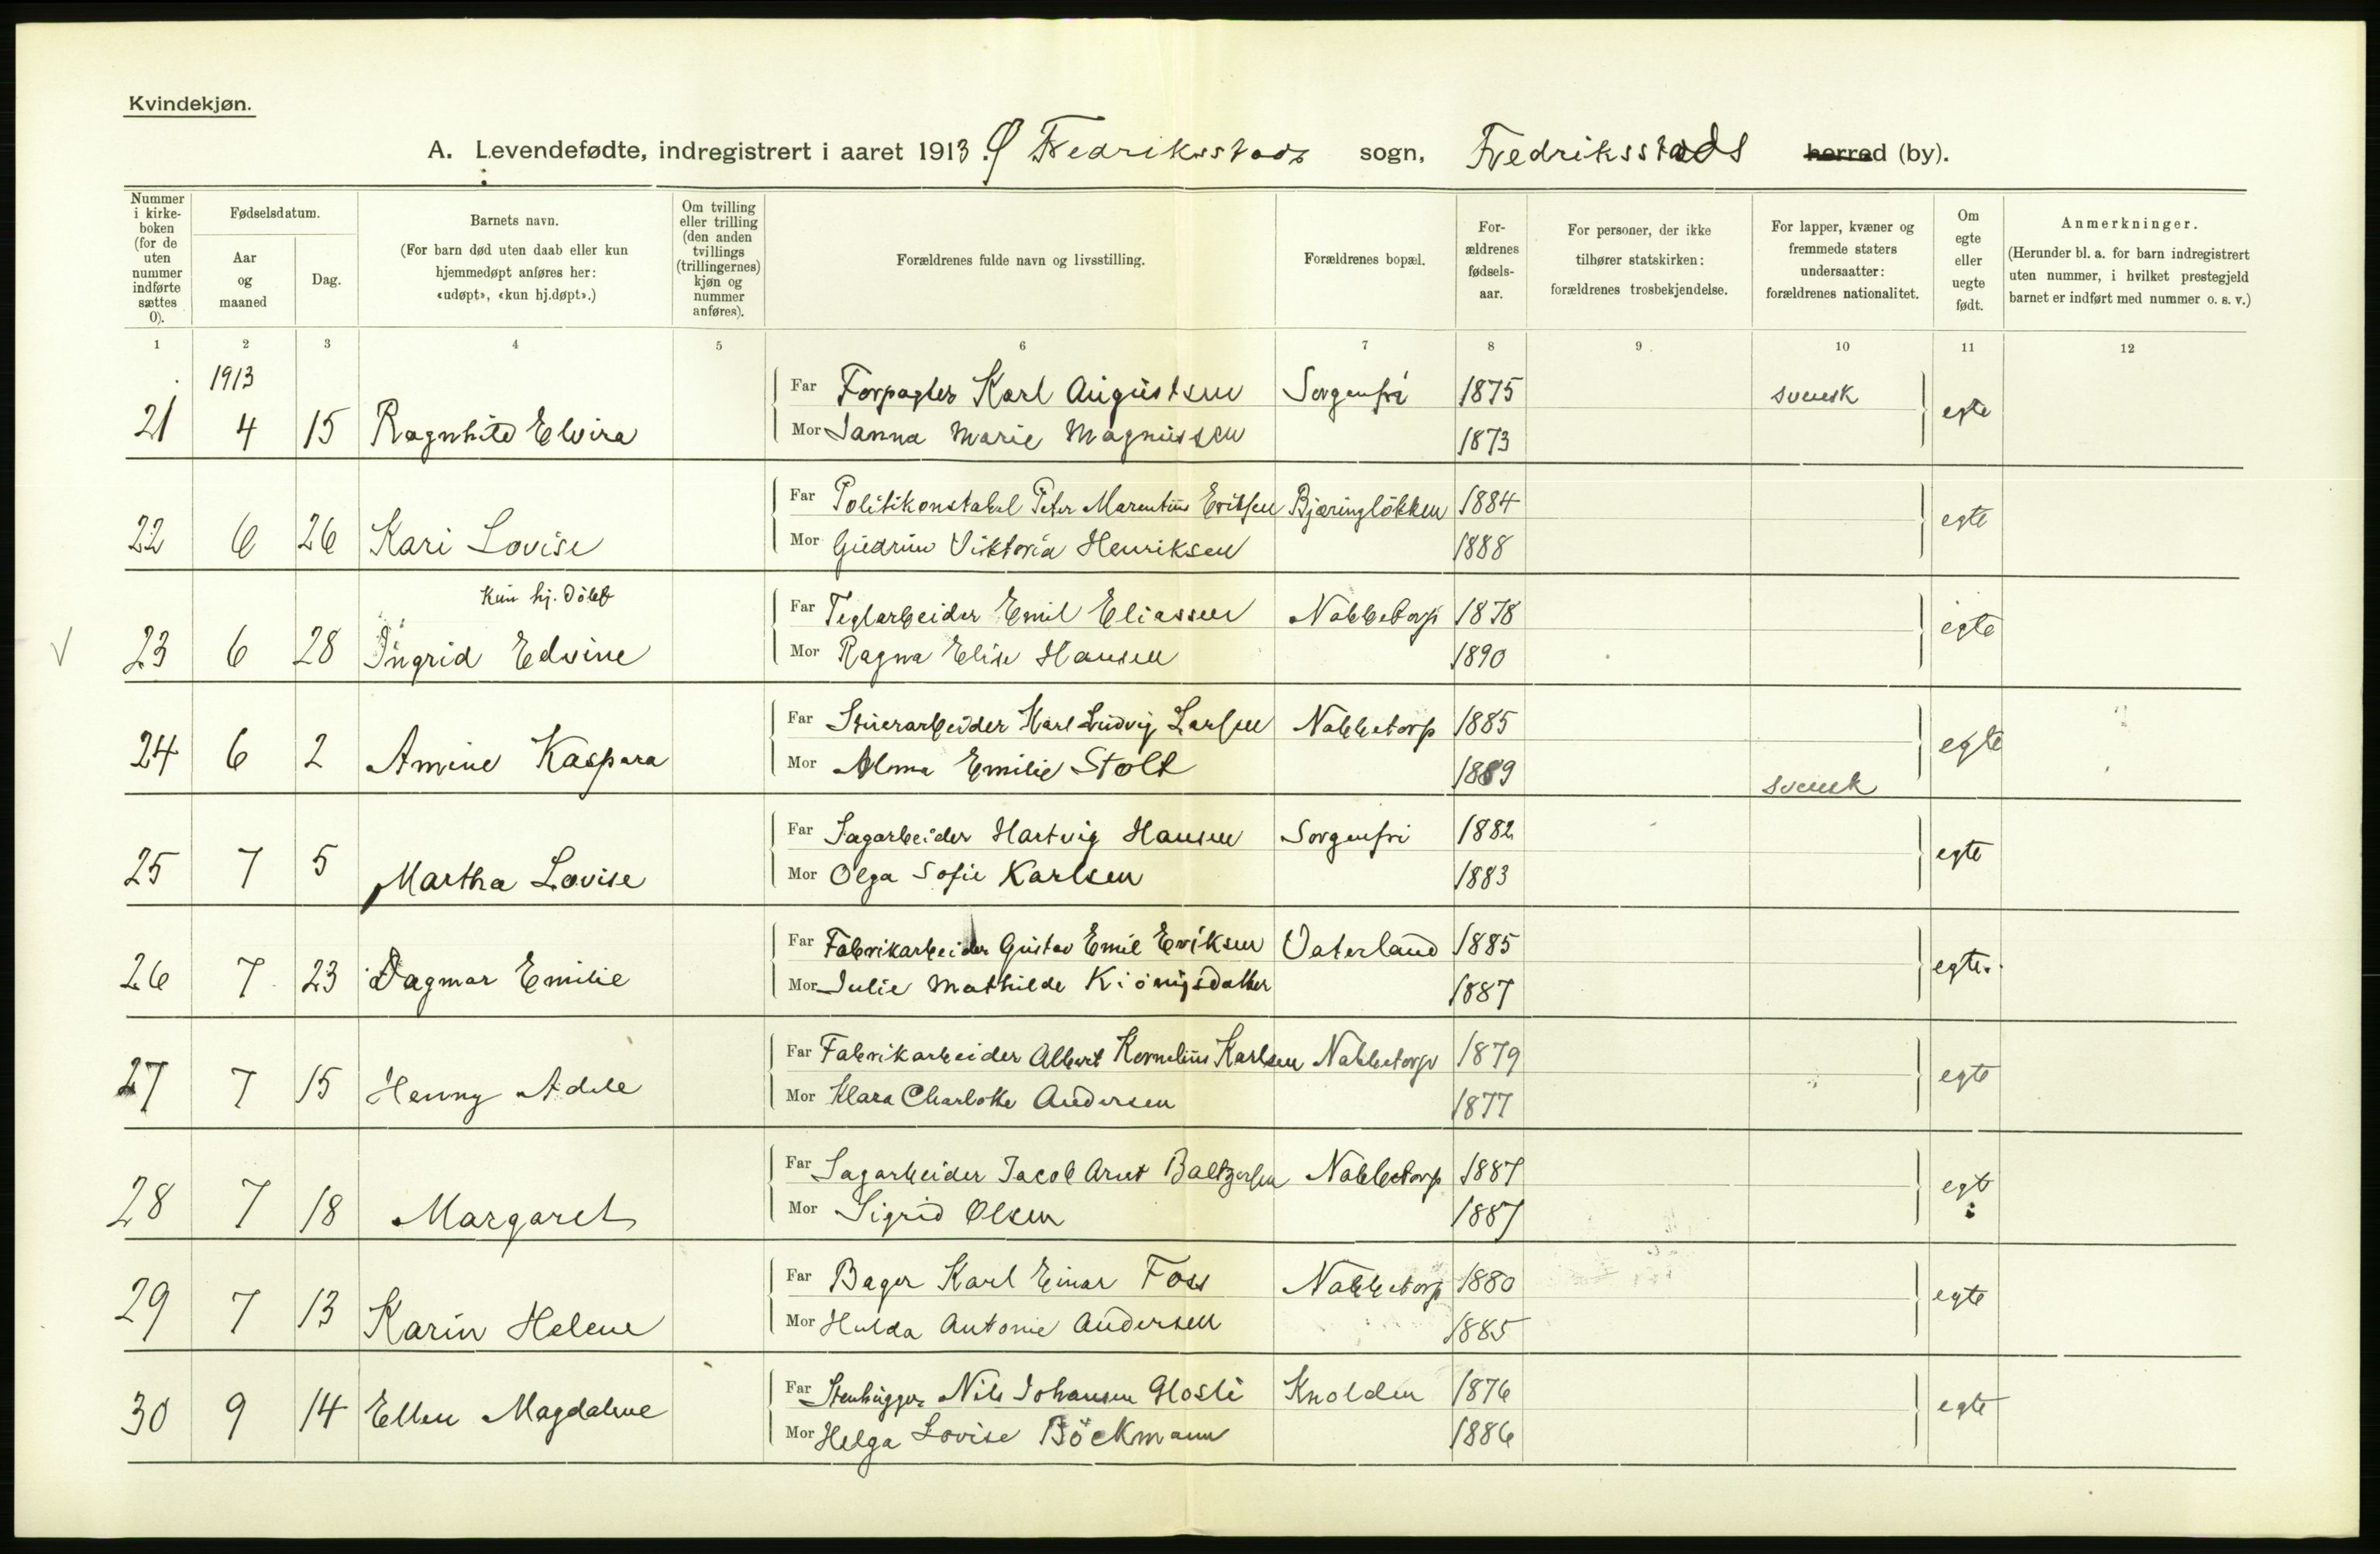 Kvindekjøn.
A. Levendefødte, indregistrert i aaret 1913. Ø Fredriksstads sogn, Fredriksstads herred (by).
Nummer i kirke-boken (for de uten nummer indførte sættes 0).
Fødselsdatum.
Aar og maaned
Dag.
Barnets navn.
(For barn død uten daab eller kun hjemmedøpt anføres her: «udøpt», «kun hj.døpt».)
Om tvilling eller trilling (den anden tvillings (trillingernes) kjøn og nummer anføres).
Forældrenes fulde navn og livsstilling.
Forældrenes bopæl.
For-ældrenes fødsels-aar.
For personer, der ikke tilhører statskirken: forældrenes trosbekjendelse.
For lapper, kvæner og fremmede staters undersaatter: forældrenes nationalitet.
Om egte eller uegte født.
Anmerkninger.
(Herunder bl. a. for barn indregistrert uten nummer, i hvilket prestegjeld barnet er indført med nummer o. s. v.)
1 2 3 4 5 6 7 8 9 10 11 12
1913
Far Forpagter Karl Augustsen Sorgenfri 1875 svensk
21 4 15 Ragnhild Elvira Mor Janna Marie Magnussen 1873 egte
Far Politikonstabel Peter Marentius Eriksen Bjæringløkken 1884
22 6 26 Kari Lovise Mor Gudrun Viktoria Henriksen 1888 egte
Kun hj. døbt
Far Teglarbeider Emil Eliassen Nabbetorp 1878
23 6 28 Ingrid Edvine Mor Ragna Elise Hansen 1890 egte
Far Stuerarbeider Karl Ludvig Larsen Nabbetorp 1885
24 6 2 Amine Kaspara Mor Alma Emilie Stolt 1889 svensk egte
Far Sagarbeider Hartvig Hansen Sorgenfri 1882
25 7 5 Martha Lovise Mor Olga Sofie Karlsen 1883 egte
Far Fabrikarbeider Gustav Emil Eriksen Vaterland 1885
26 7 23 Dagmar Emilie Mor Julie Mathilde 1887 egte
Far Fabrikarbeider Albert Kornelius Karlsen Nabbetorp 1879
27 7 15 Henny Adele Mor Klara Charlotte Andersen 1877 egte
Far Sagarbeider Jacob Arnt Baltzersen Nabbetorp 1887
28 7 18 Margaret Mor Sigrid Olsen 1887 egt
Far Bager Karl Einar Foss Nabbetorp 1880
29 7 13 Karin Helene Mor Hulda Antonie Andersen 1885 egte
Far Stenhugger Nils Johansen Glosli Knolden 1876
30 9 14 Ellen Magdalene Mor Helga Lovise Böckmann 1886 egte